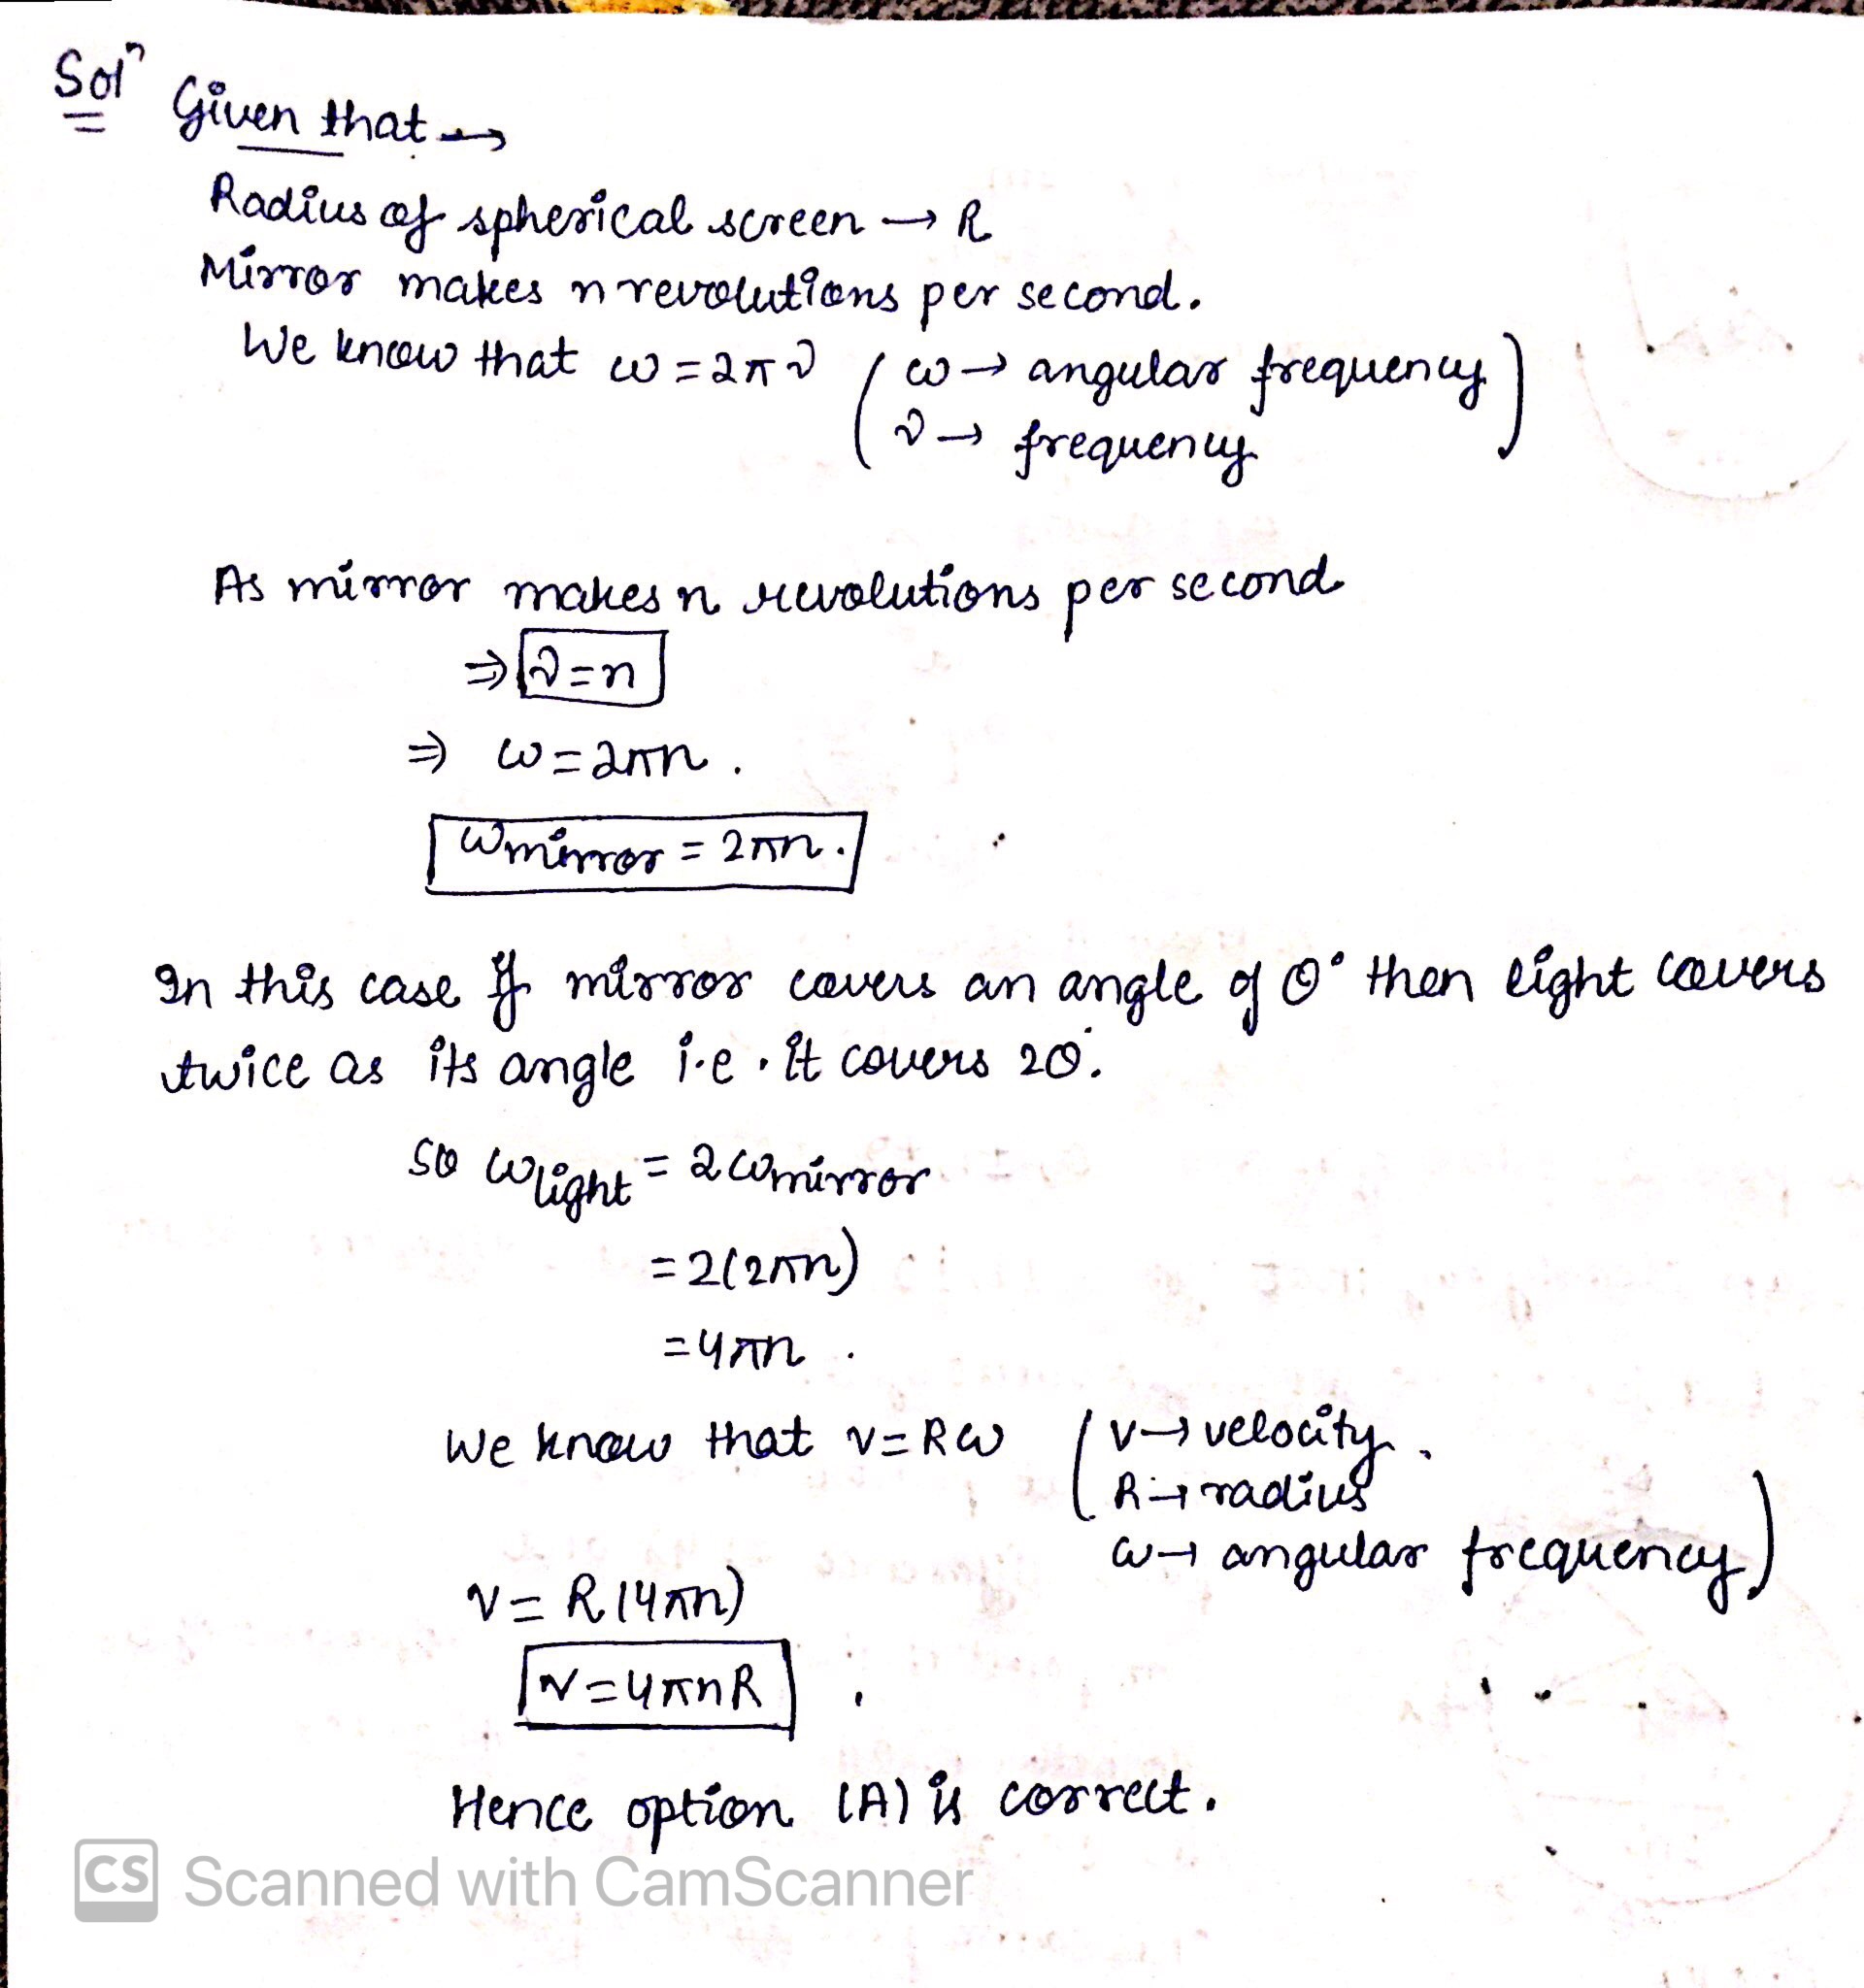 Solⁿ Given that →
Radius of spherical screen → R
Mirror makes n revolutions per second.
We know that ω = 2πν (ω → angular frequency
ν → frequency)
As mirror makes n revolutions per second
⇒ ν = n
⇒ ω = 2πn .
ωmirror = 2πn .
In this case if mirror covers an angle of θ° then light covers
twice as its angle i.e. it covers 2θ.
so ωlight = 2ωmirror
= 2(2πn)
= 4πn .
We know that v = Rω (v → velocity.
R → radius
ω → angular frequency)
v = R(4πn)
v = 4πnR .
Hence option (A) is correct.
CS Scanned with CamScanner